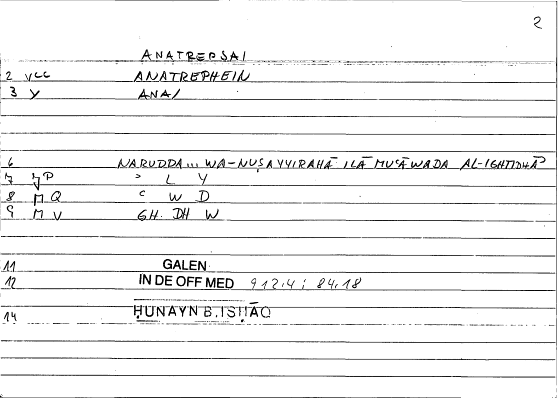 2
ANATREPSAI
2 VCC ANATREPHEIN
3 Y ANA/
6 NARUDDA... WA-NUṢAYYIRAHĀ ILĀ MUʿĀWADA AL-IGHTIDHĀʾ
7 P ʾ L Y
8 M Q ʿ W D
9 M V GH DH W
11 GALEN
12 IN DE OFF MED 912.4 ; 84.18
14 ḤUNAYN B. ISḤĀQ